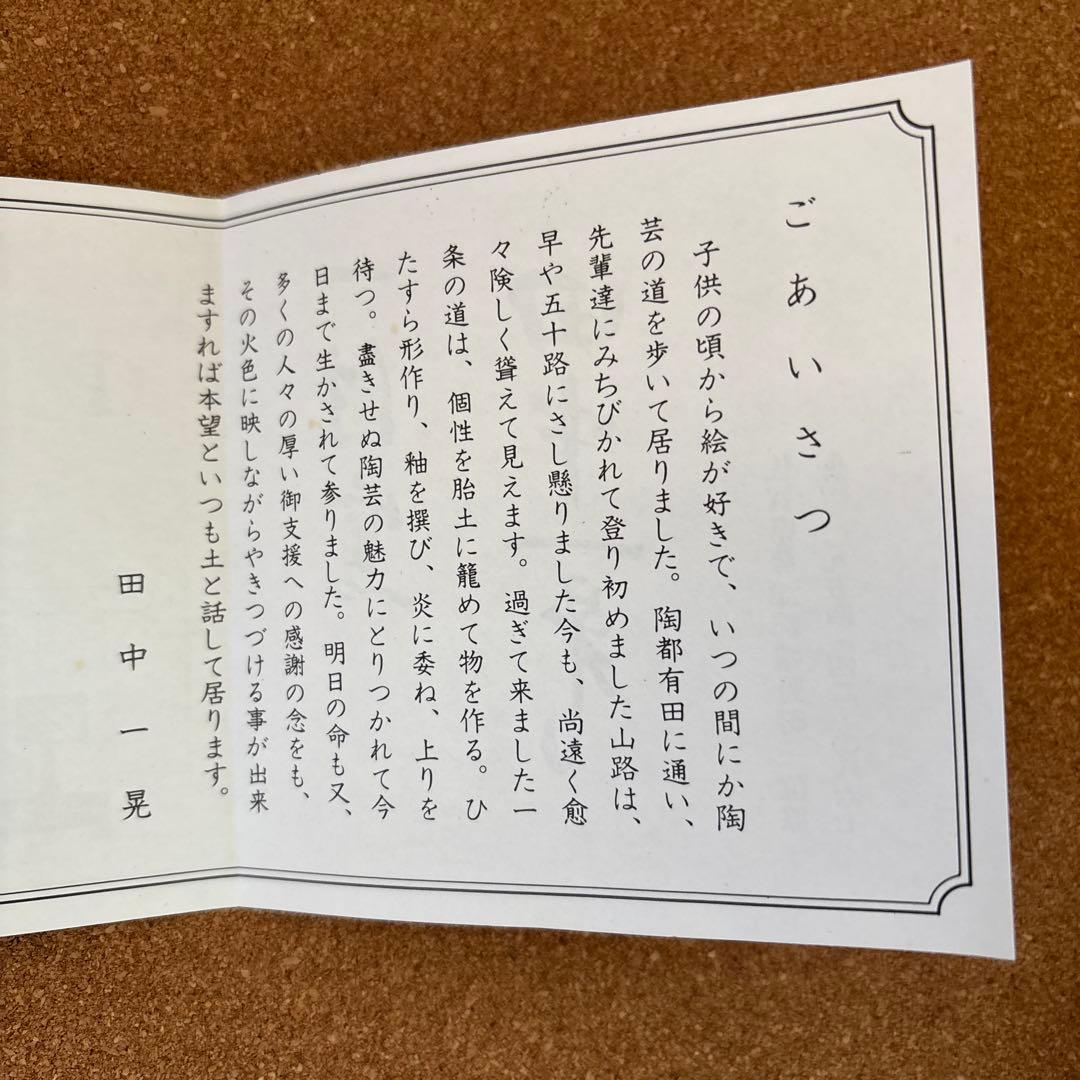 ごあいさつ
子供の頃から絵が好きで、いつの間にか陶
芸の道を歩いて居りました。陶都有田に通い、
先輩達にみちびかれて登り初めました山路は、
早や五十路にさし懸りました今も、尚遠く愈
々険しく聳えて見えます。過ぎて来ました一
条の道は、個性を胎土に籠めて物を作る。ひ
たすら形作り、釉を撰び、炎に委ね、上りを
待つ。盡きせぬ陶芸の魅力にとりつかれて今
日まで生かされて参りました。明日の命も又、
多くの人々の厚い御支援への感謝の念をも、
その火色に映しながらやきつづける事が出来
ますれば本望といつも土と話して居ります。
田中一晃